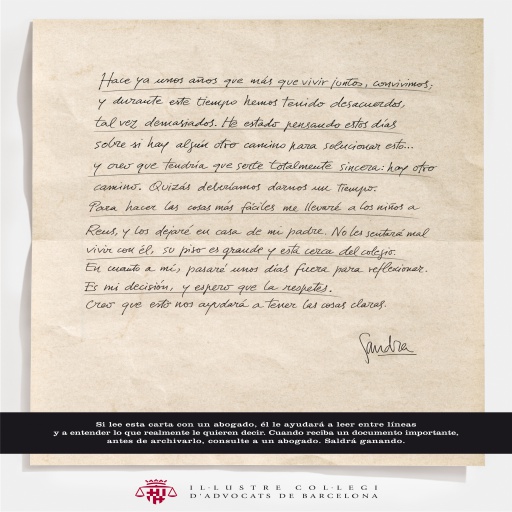 Hace ya unos años que más que vivir juntos, convivimos;
y durante este tiempo hemos tenido desacuerdos,
tal vez demasiados. He estado pensando estos días
sobre si hay algún otro camino para solucionar esto...
y creo que tendría que serte totalmente sincera: hay otro
camino. Quizás deberíamos darnos un tiempo.
Para hacer las cosas más fáciles me llevaré a los niños a
Reus, y los dejaré en casa de mi padre. No les sentará mal
vivir con él, su piso es grande y está cerca del colegio.
En cuanto a mí, pasaré unos días fuera para reflexionar.
Es mi decisión, y espero que la respetes.
Creo que esto nos ayudará a tener las cosas claras.
Sandra
Si lee esta carta con un abogado, él le ayudará a leer entre líneas
y a entender lo que realmente le quieren decir. Cuando reciba un documento importante,
antes de archivarlo, consulte a un abogado. Saldrá ganando.
IL·LUSTRE COL·LEGI
D'ADVOCATS DE BARCELONA